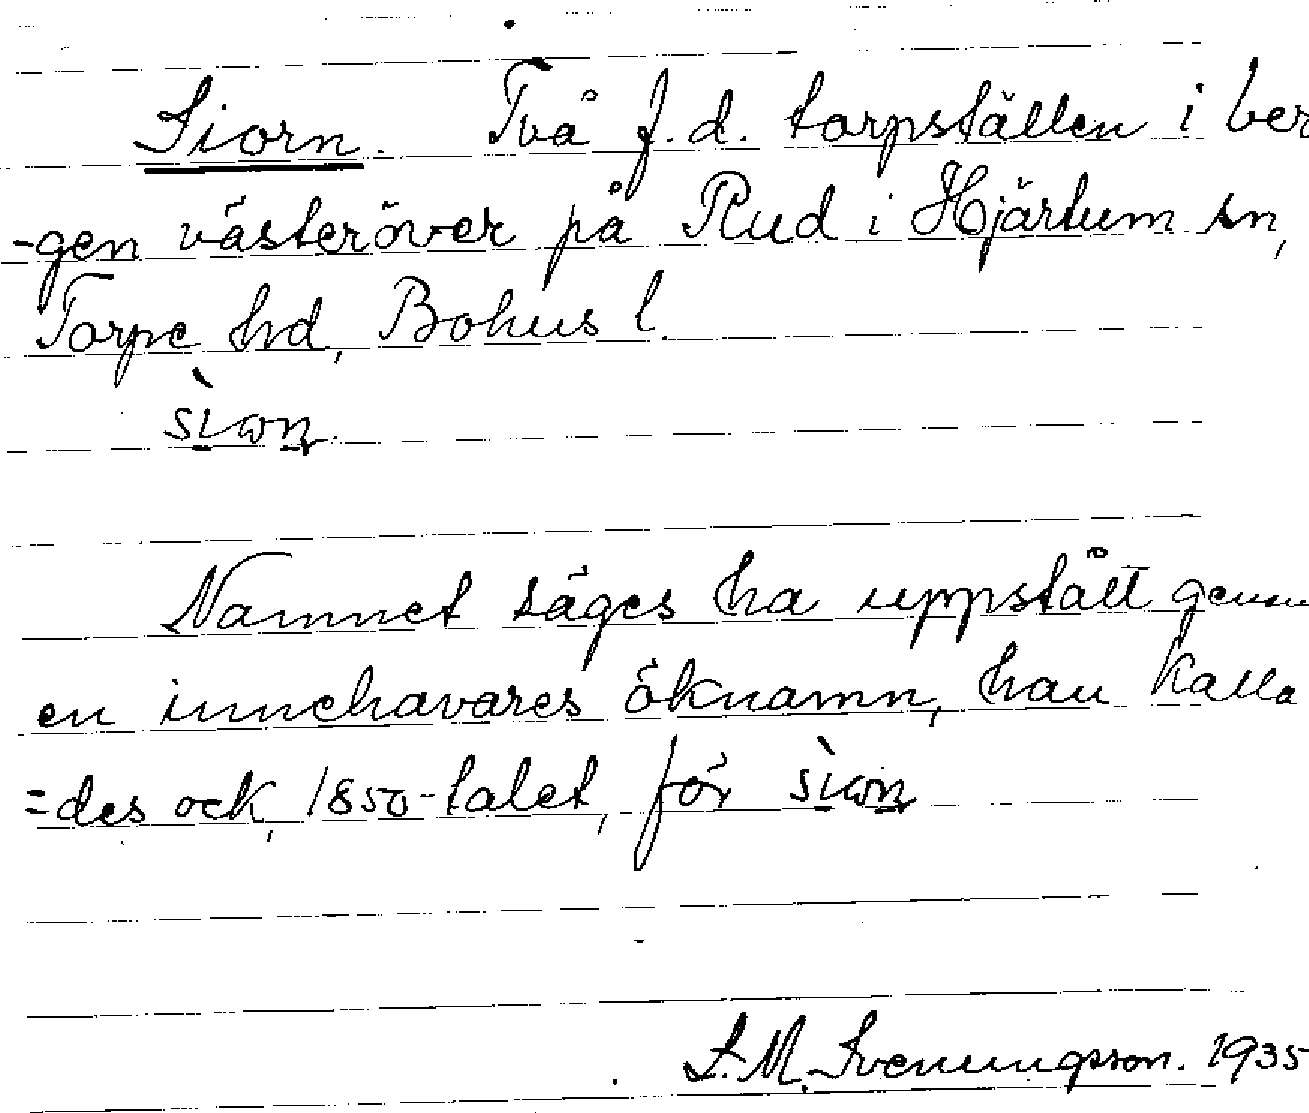 Siorn. Två f.d. torpställen i ber
-gen västeröver på Rud i Hjärtum sn,
Torpe hd, Bohus l.
sìωn
Namnet säges ha uppstått genom
en innehavares öknamn, han kalla
=des ock, 1850-talet, för sìωn
S. M. Svenungsson. 1935